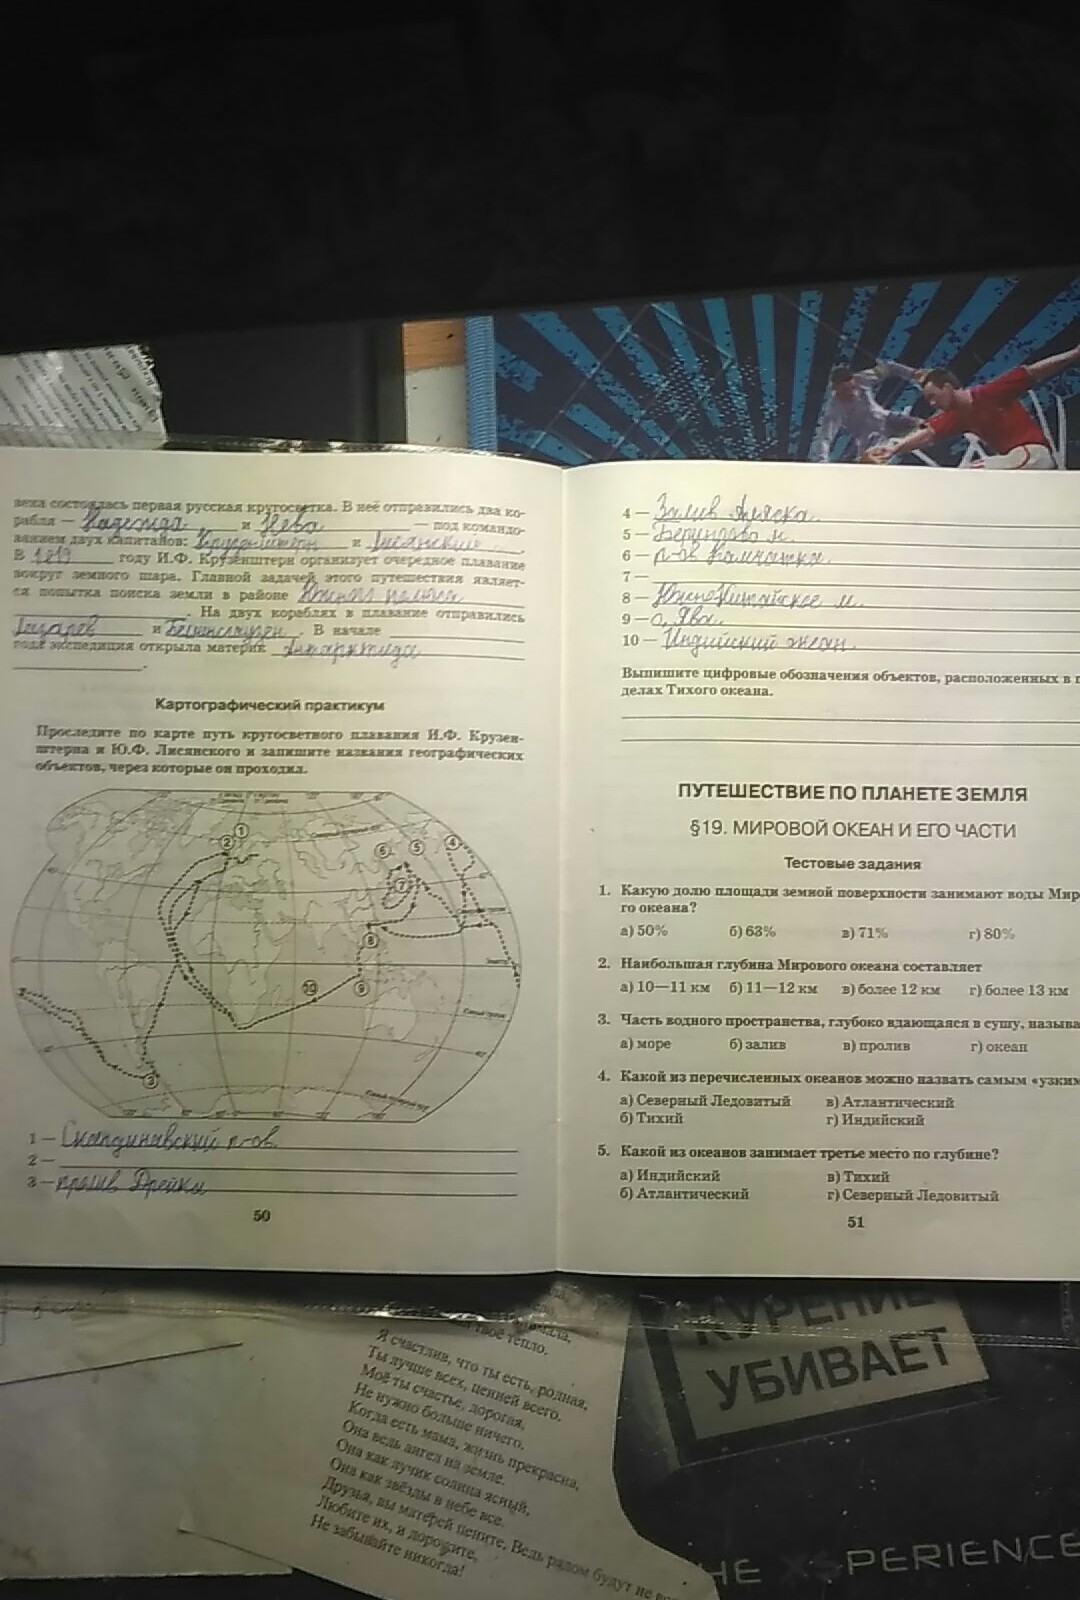 века состоялась первая русская кругосветка. В неё отправились два ко-
рабля — Надежда и Нева — под командо-
ванием двух капитанов: Крузенштерн и Лисянский.
В 1819 году И.Ф. Крузенштерн организует очередное плавание
вокруг земного шара. Главной задачей этого путешествия являет-
ся попытка поиска земли в районе Южного полюса
. На двух кораблях в плавание отправились
Лазарев и Беллинсгаузен. В начале
года экспедиция открыла материк Антарктида
Картографический практикум
Проследите по карте путь кругосветного плавания И.Ф. Крузен-
штерна и Ю.Ф. Лисянского и запишите названия географических
объектов, через которые он проходил.
1
2
6
5
4
7
8
10
9
3
1 — Скандинавский п-ов.
2 —
3 — пролив Дрейка
50
4 — Залив Аляска.
5 — Берингово м.
6 — п-ов Камчатка.
7 —
8 — ЮжноКитайское м.
9 — о. Ява.
10 — Индийский океан.
Выпишите цифровые обозначения объектов, расположенных в
делах Тихого океана.
ПУТЕШЕСТВИЕ ПО ПЛАНЕТЕ ЗЕМЛЯ
§19. МИРОВОЙ ОКЕАН И ЕГО ЧАСТИ
Тестовые задания
1. Какую долю площади земной поверхности занимают воды Мир
го океана?
а) 50% б) 63% в) 71% г) 80%
2. Наибольшая глубина Мирового океана составляет
а) 10—11 км б) 11—12 км в) более 12 км г) более 13 км
3. Часть водного пространства, глубоко вдающаяся в сушу, называ
а) море б) залив в) пролив г) океан
4. Какой из перечисленных океанов можно назвать самым «узким
а) Северный Ледовитый в) Атлантический
б) Тихий г) Индийский
5. Какой из океанов занимает третье место по глубине?
а) Индийский в) Тихий
б) Атлантический г) Северный Ледовитый
51
твоё тепло.
Я счастлив, что ты есть, родная,
Ты лучше всех, ценней всего.
Моё ты счастье, дорогая,
Не нужно больше ничего.
Когда есть мама, жизнь прекрасна,
Она ведь ангел на земле.
Она как лучик солнца ясный,
Она как звёзды в небе все.
Друзья, вы матерей цените, Ведь рядом будут не
Любите их, и дорожите,
Не забывайте никогда!
КУРЕНИЕ
УБИВАЕТ
HE XSPERIENCE